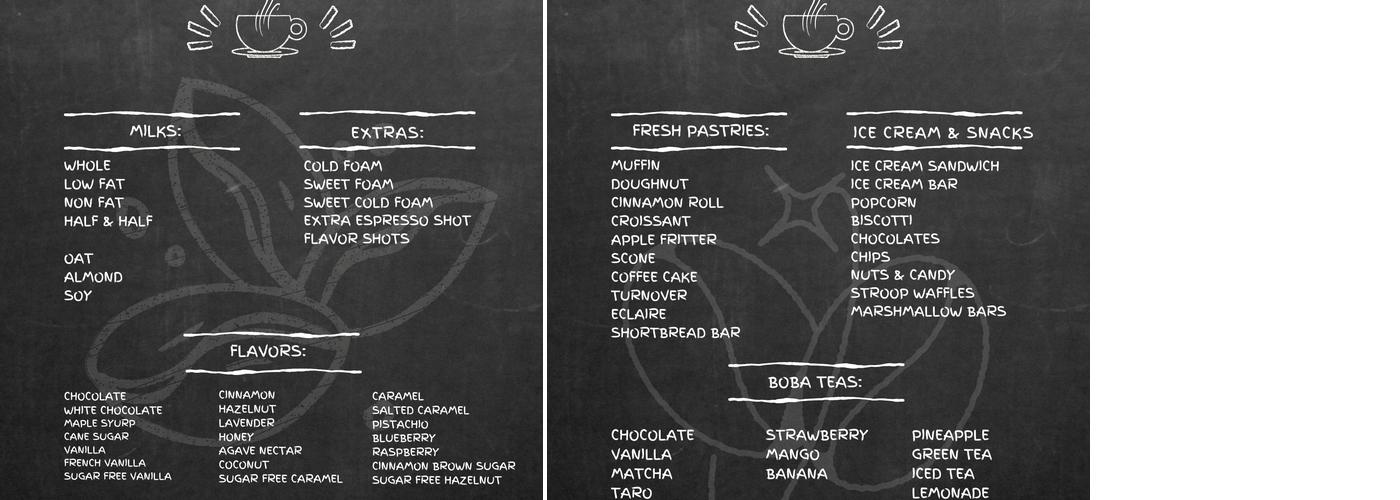 MILKS:
WHOLE
LOW FAT
NON FAT
HALF & HALF
OAT
ALMOND
SOY
EXTRAS:
COLD FOAM
SWEET FOAM
SWEET COLD FOAM
EXTRA ESPRESSO SHOT
FLAVOR SHOTS
FLAVORS:
CHOCOLATE
WHITE CHOCOLATE
MAPLE SYURP
CANE SUGAR
VANILLA
FRENCH VANILLA
SUGAR FREE VANILLA
CINNAMON
HAZELNUT
LAVENDER
HONEY
AGAVE NECTAR
COCONUT
SUGAR FREE CARAMEL
CARAMEL
SALTED CARAMEL
PISTACHIO
BLUEBERRY
RASPBERRY
CINNAMON BROWN SUGAR
SUGAR FREE HAZELNUT
FRESH PASTRIES:
MUFFIN
DOUGHNUT
CINNAMON ROLL
CROISSANT
APPLE FRITTER
SCONE
COFFEE CAKE
TURNOVER
ECLAIRE
SHORTBREAD BAR
ICE CREAM & SNACKS
ICE CREAM SANDWICH
ICE CREAM BAR
POPCORN
BISCOTTI
CHOCOLATES
CHIPS
NUTS & CANDY
STROOP WAFFLES
MARSHMALLOW BARS
BOBA TEAS:
CHOCOLATE
VANILLA
MATCHA
TARO
STRAWBERRY
MANGO
BANANA
PINEAPPLE
GREEN TEA
ICED TEA
LEMONADE